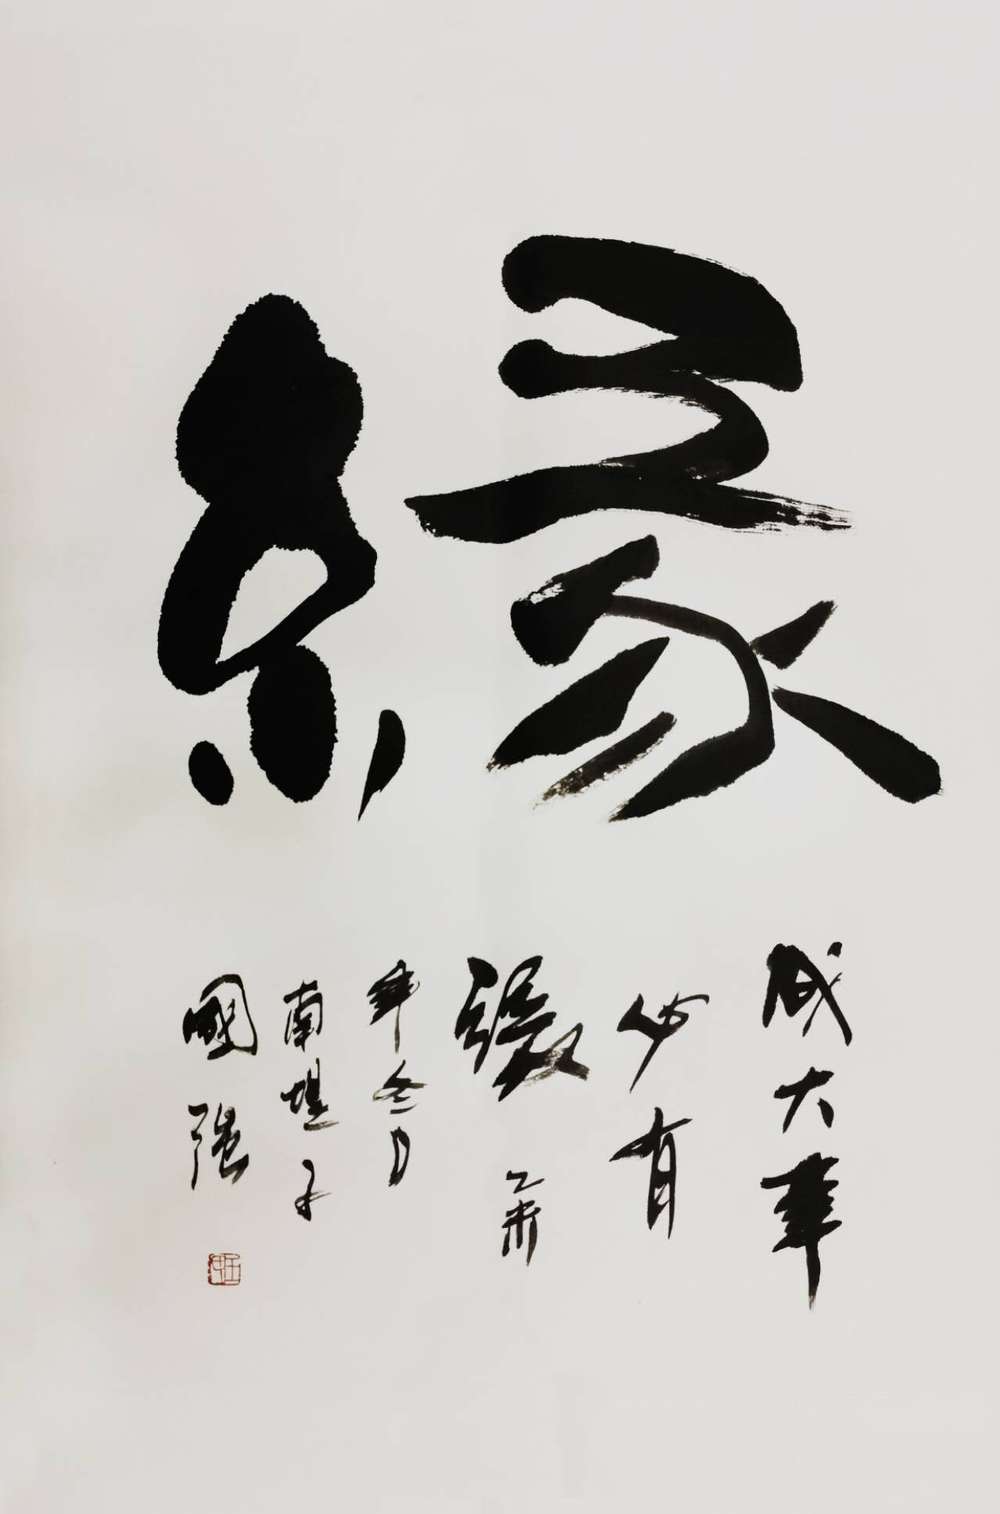 緣
成大事
必有
緣 乙未
年冬月
南堤子
國強